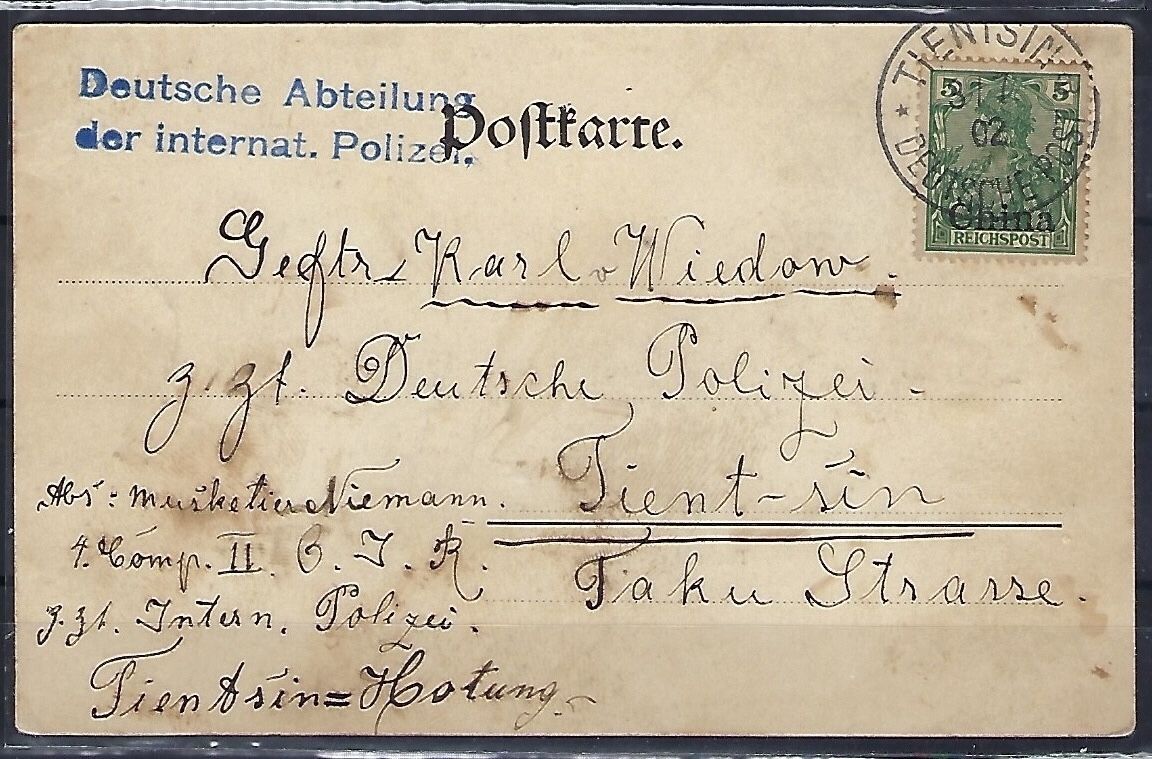 Deutsche Abteilung
der internat. Polizei.
Postkarte.
TIENTSIN
31 7
02
* DEUTSCHE POST
5 5
China
REICHSPOST
Geftr. Karl v Wiedow.
z. Zt. Deutsche Polizei.
Tient-sin
Taku Strasse.
Abs: Musketier Niemann.
4. Comp. II. O. I. R.
z. Zt. Intern. Polizei.
Tientsin=Hotung.